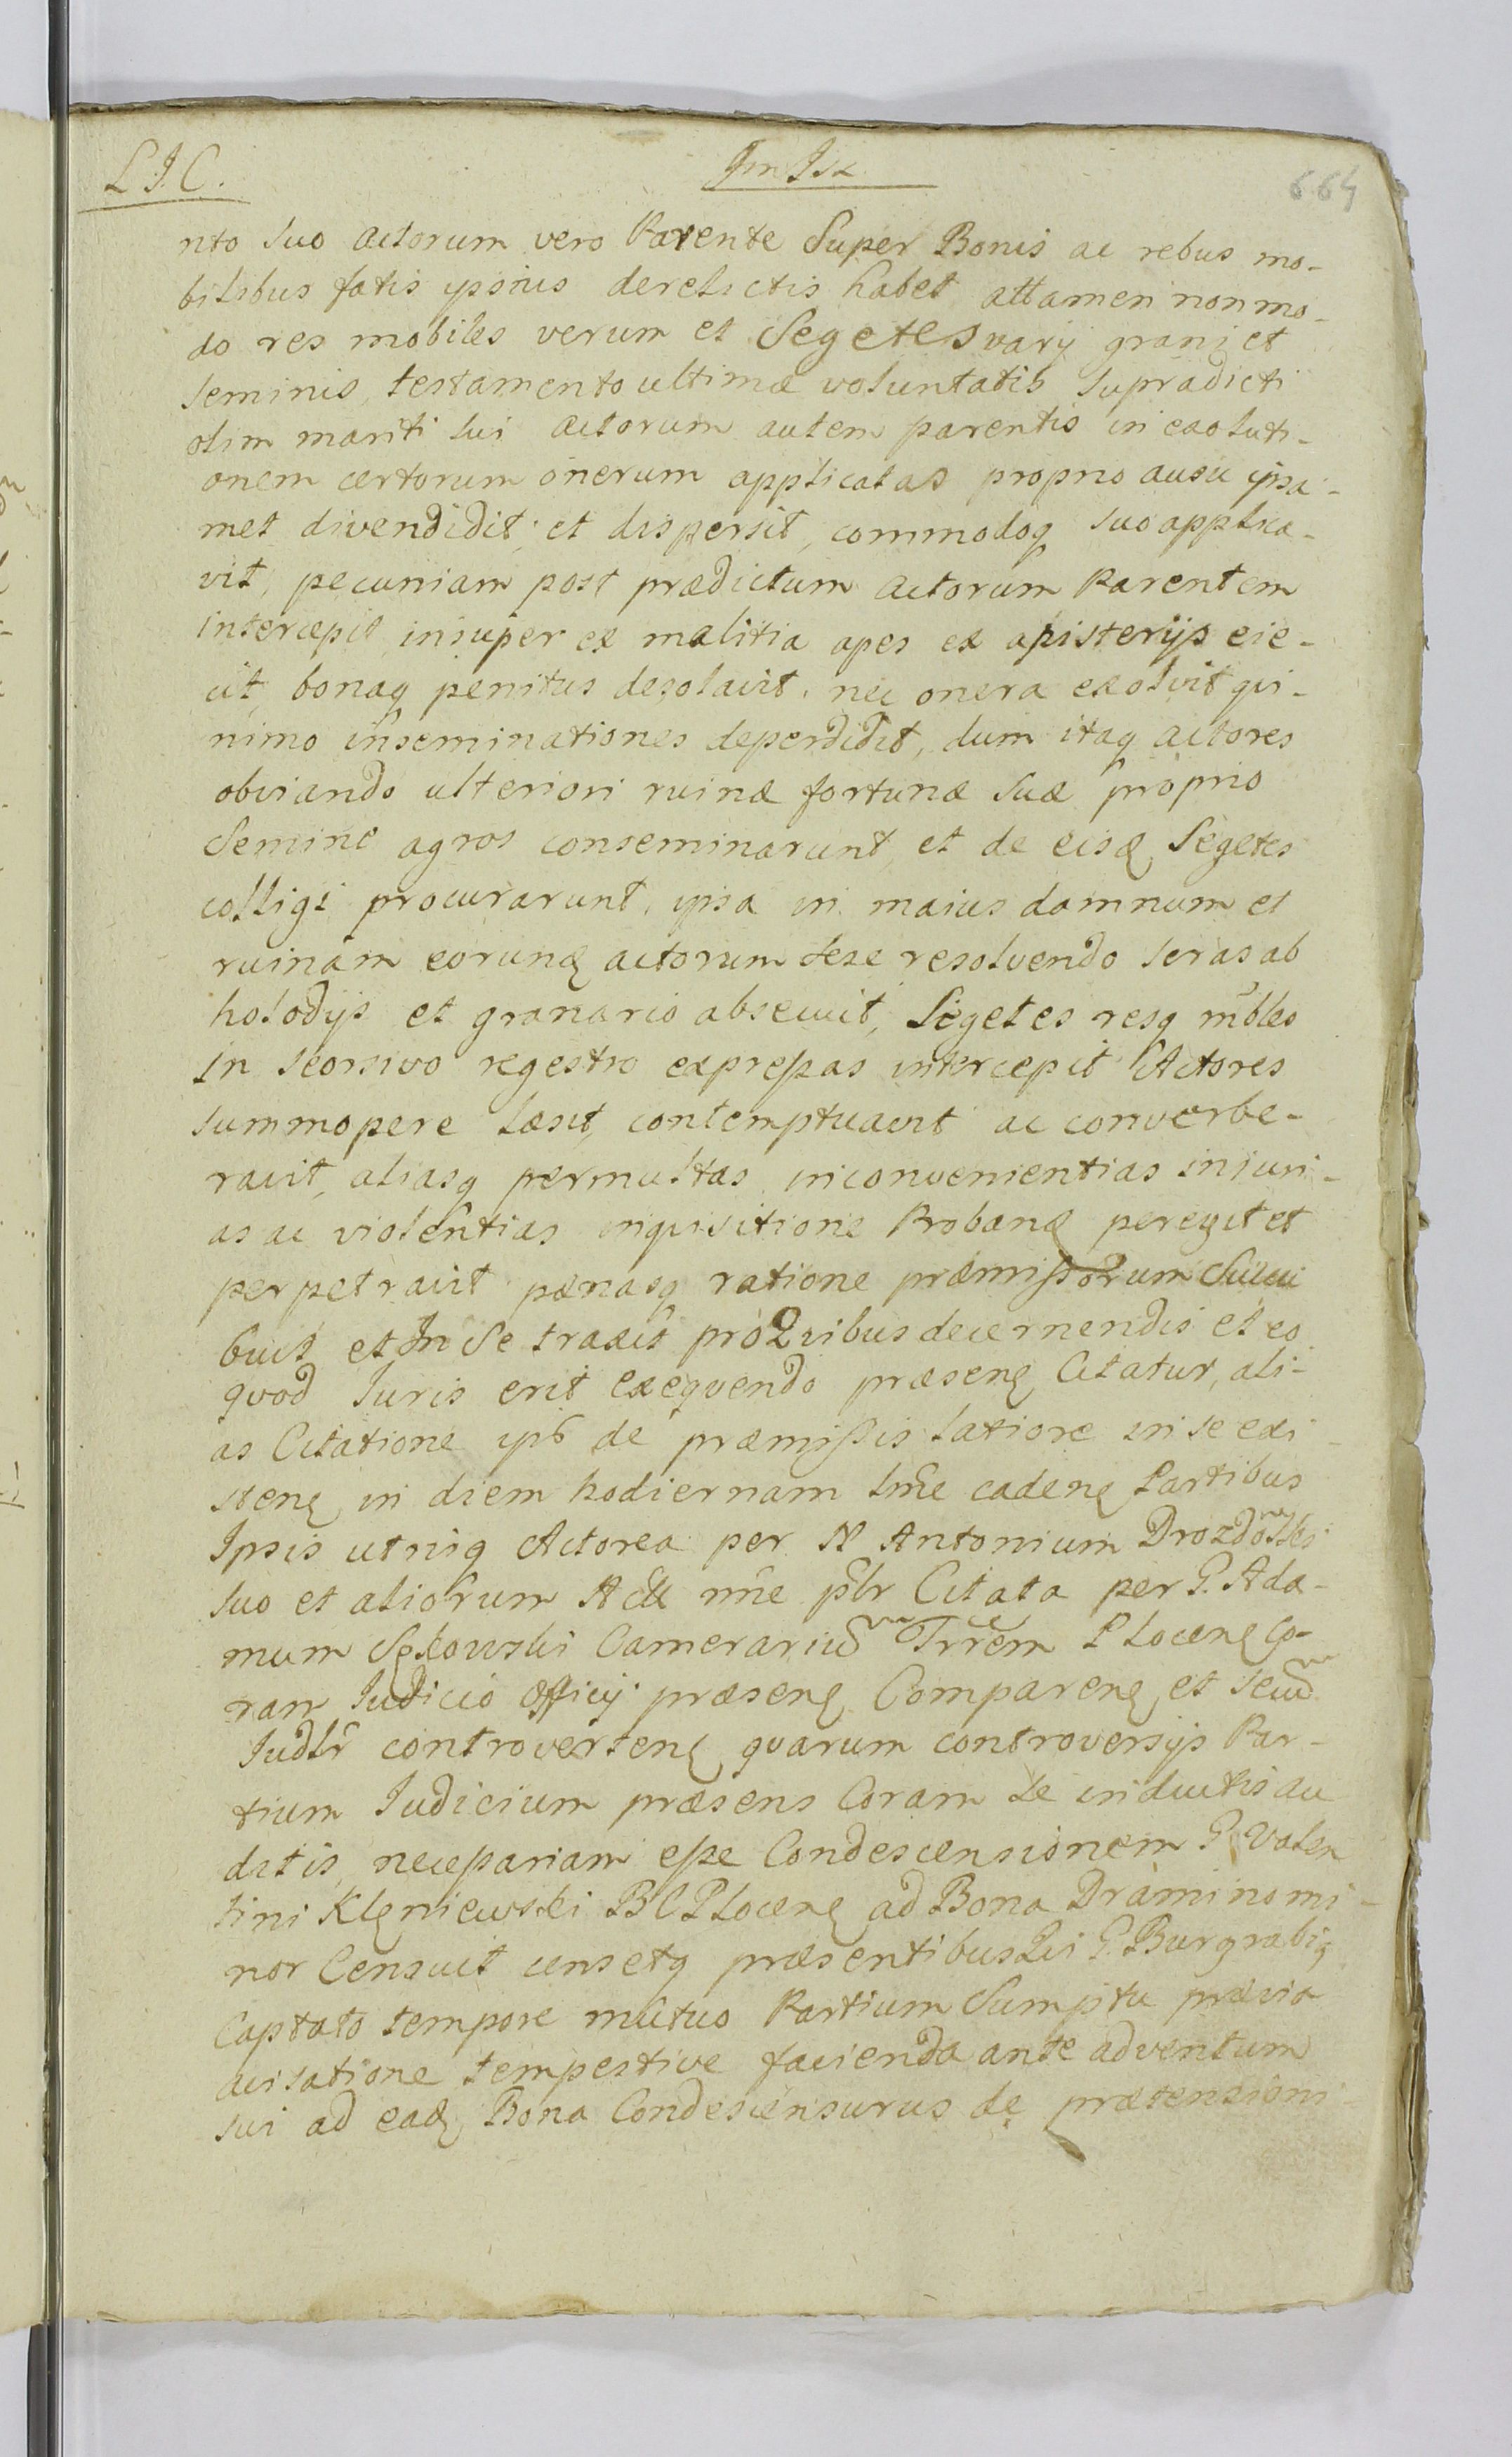 L J. C.
664
nto suo actorum vero Parente Super Bonis ac rebus mo-
bilibus fatis ypsius derelictis habet attamen non mo-
do res mobiles verum et Segetes varÿ grani et
seminis, testamento ultimæ voluntatis supradicti
olim mariti sui actorum autem parentis in exoluti-
onem certorum onerum applicatas proprio ausu ypsa-
met divendidit, et dispersit, commodoq suo applica-
vit, pecuniam post prædictum actorum Parentem
intercepit, insuper ex malitia apes ex apisterijs eie-
cit, bonaq penitus desolavit, nec onera exolvit qui-
nimo inseminationes deperdidit, dum itaq actores
obviando ulteriori ruinæ fortunæ suæ proprio
Semine agros conseminarunt, et de eisd Segetes
colligi procurarunt, ypsa in maius damnum et
ruinam eorund actorum sese resolvendo seras ab
holodijs et granario absecuit, Segetes resq mbles
in seorsivo regestro expressas intercepit Actores
summopere læsit, contemptuavit ac converbe-
ravit, aliasq permultas inconvenientias iniuri-
as ac violentias inquisitione Proband peregit et
perpetravit pænasq ratione præmissorum
buit et In Se traxit pro Quibus decernendis et eo
quod Juris erit exequendo præsen Citatur, ali-
as Citatione ypso de præmissis latiore in se exi-
sten in diem hodiernam lme caden Partibus
Ipsis utrisq Actorea per N Antonium Drozdowski
suo et aliorum Act nne plr Citata per G. Ada-
mum Sękowski Camerarium Trrem Plocen Co-
ram Judicio Officij præsen Comparen et secum
Judlr controverten quarum controversijs Par-
tium Judicium præsens Coram se inductis au
ditis, necessariam esse Condescensionem G. Valen
tini Klęniewski B C Plocen ad Bona Dramino mi-
nor Censuit censetq præsentibus Qui G. Burgrabig
Captato tempore mutuo Partium Sumptu prævia
avisatione tempestive facienda ante adventum
sui ad ead Bona Condescensurus de prætensioni-